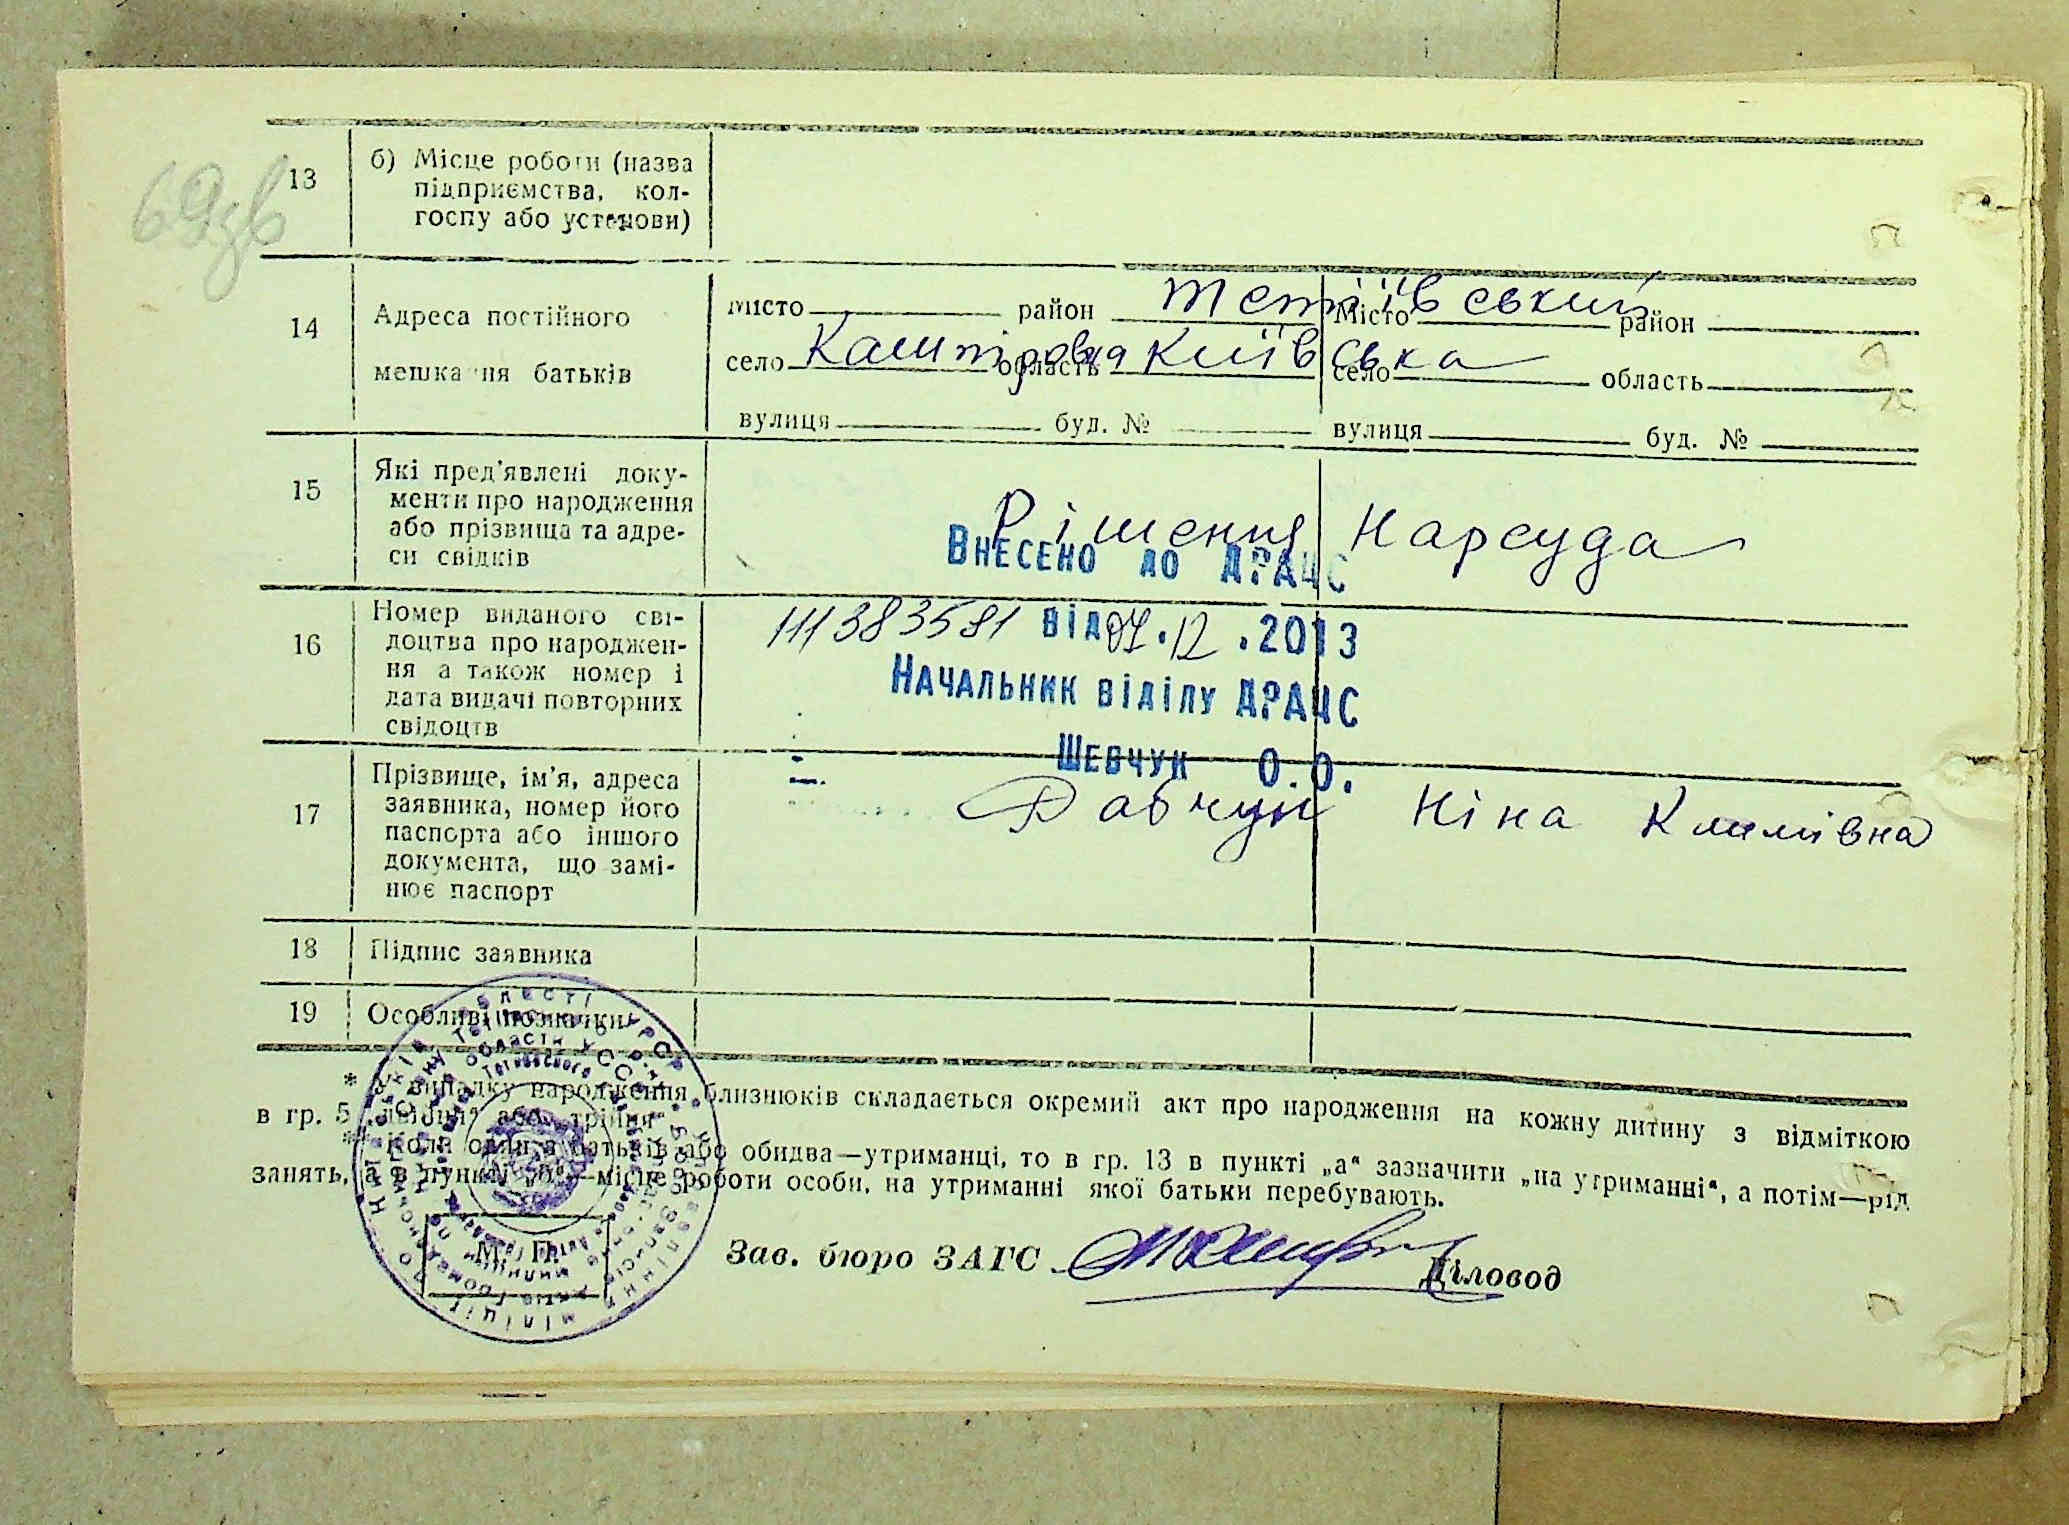 69зв
13 б) Місце роботи (назва
підприємства, кол-
госпу або установи)
14 Адреса постійного
мешкання батьків
місто район Тетіївський
село Кашперовка область Київська
вулиця буд. №
Місто район
село область
вулиця буд. №
15 Які пред'явлені доку-
менти про народження
або прізвища та адре-
си свідків
Рішення Нарсуда
Внесено до ДРАЦС
16 Номер виданого сві-
доцтва про народжен-
ня а також номер і
дата видачі повторних
свідоцтв
111383581 від 07.12.2013
Начальник відділу ДРАЦС
Шевчук О.О.
17 Прізвище, ім'я, адреса
заявника, номер його
паспорта або іншого
документа, що замі-
нює паспорт
Равчук Ніна Климівна
18 Підпис заявника
19 Особливі позначки
* У випадку народження близнюків складається окремий акт про народження на кожну дитину з відміткою
в гр. 5 „двійня“ або „трійня“.
** Коли один з батьків або обидва—утриманці, то в гр. 13 в пункті „а“ зазначити „на утриманні“, а потім—рід
занять, а в пункті „б“—місце роботи особи, на утриманні якої батьки перебувають.
М. П.
Зав. бюро ЗАГС Діловод